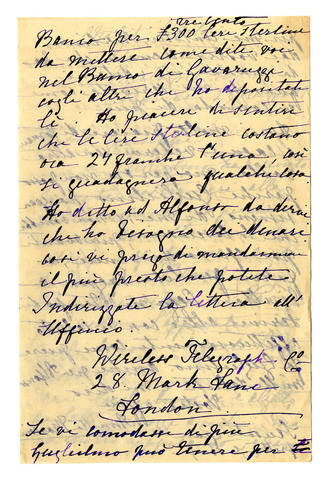 trecento
Banco per £300 lere sterline
da mettese come dite voi
nel Banco di Gavaruzzi
cogli altri che ho depositati
lì. Ho piacere di sentire
che le lire sterline costano
ora 27 franchi l'una, così
si guadagnera qualche cosa
Ho ditto ad Alfonso da dirve
che ho bisogno dei denari
così vi prego di mandarmene
il più presto che potete
Indirizzate la lettera all'
Uffinio.
Wireless Telegraph Co
28. Mark Lane
London
Se vi comodasse di più
Guglielmo può tenere per